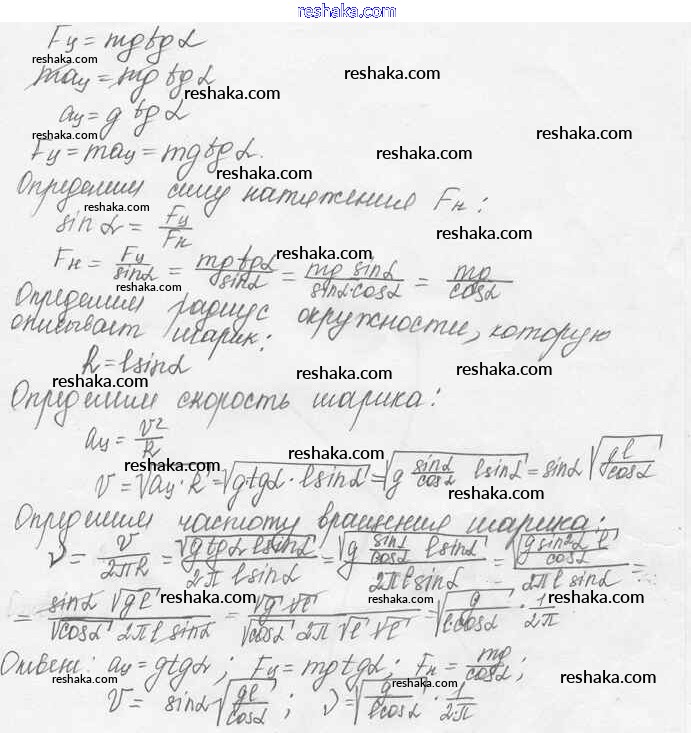 reshaka.com
Fц = mg tg α
reshaka.com
reshaka.com
maц = mg tg α
reshaka.com
aц = g tg α
reshaka.com
reshaka.com
reshaka.com
Fц = maц = mg tg α.
reshaka.com
Определим силу натяжения Fн:
reshaka.com
sin α = Fц/Fн
reshaka.com
reshaka.com
Fн = Fц/sin α = mg tg α/sin α = mg sin α/(sin α·cos α) = mg/cos α
reshaka.com
Определим радиус окружности, которую
reshaka.com
описывает шарик:
reshaka.com
R = l sin α
reshaka.com
reshaka.com
reshaka.com
Определим скорость шарика:
reshaka.com
aц = v²/R
reshaka.com
reshaka.com
v = √(aц·R) = √(g tg α · l sin α) = √(g sin α/cos α l sin α) = sin α √(gl/cos α)
reshaka.com
Определим частоту вращения шарика:
reshaka.com
ν = v/2πR = √(g tg α l sin α)/(2π l sin α) = √(g sin α/cos α l sin α)/(2π l sin α) = √(g sin² α l/cos α)/(2π l sin α) =
reshaka.com
reshaka.com
= sin α √(gl)/(√cos α 2π l sin α) = √g √l/(√cos α 2π √l √l) = √(g/(l cos α)) · 1/2π
reshaka.com
reshaka.com
reshaka.com
Ответ: aц = g tg α; Fц = mg tg α; Fн = mg/cos α;
reshaka.com
reshaka.com
reshaka.com
v = sin α √(gl/cos α); ν = √(g/(l cos α)) · 1/2π
reshaka.com
reshaka.com
reshaka.com